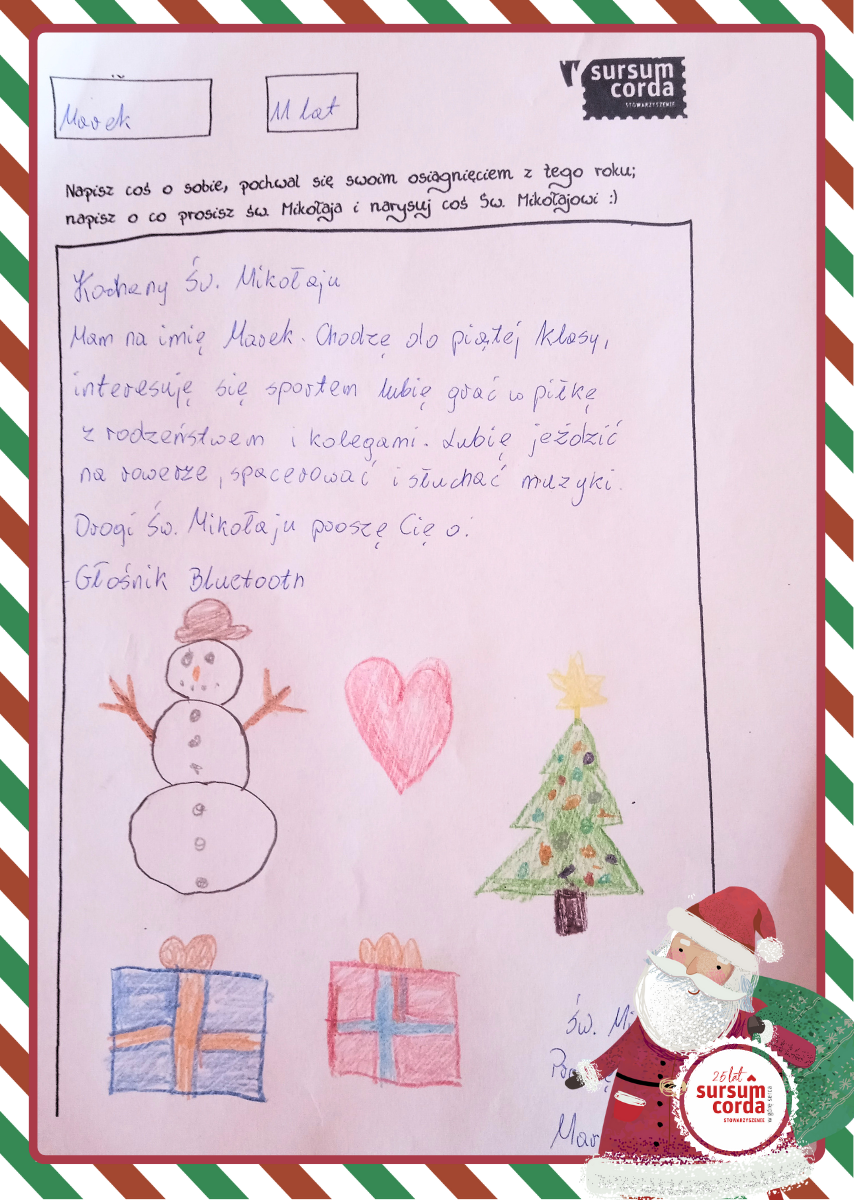 sursum
corda
STOWARZYSZENIE
Marek
11 lat
Napisz coś o sobie, pochwal się swoim osiągnięciem z tego roku;
napisz o co prosisz św. Mikołaja i narysuj coś Św. Mikołajowi :)
Kochany Św. Mikołaju
Mam na imię Marek. Chodzę do piątej klasy,
interesuję się sportem lubię grać w piłkę
z rodzeństwem i kolegami. Lubię jeździć
na rowerze, spacerować i słuchać muzyki.
Drogi Św. Mikołaju proszę Cię o:
-Głośnik Bluetooth
Św. Mi
Mar
25 lat
sursum
corda
STOWARZYSZENIE
w górę serca